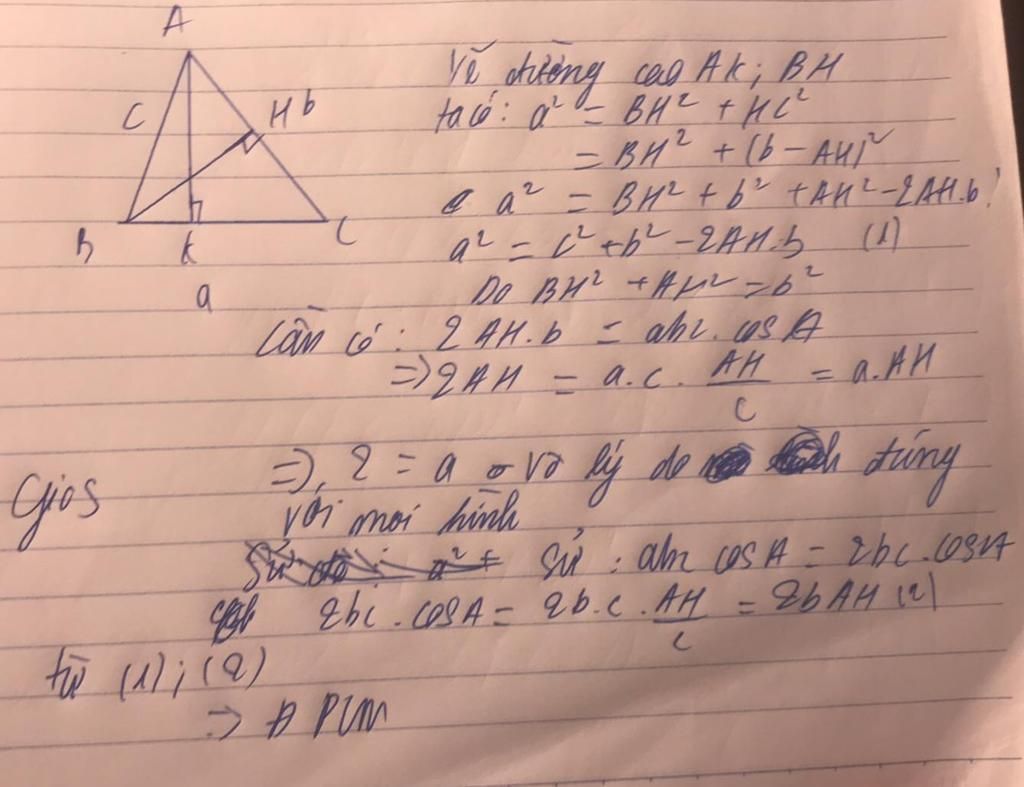 A
C
H b
B
K
C
a
Vẽ đường cao AK; BH
ta có: a² = BH² + HC²
= BH² + (b - AH)²
a² = BH² + b² + AH² - 2AH.b
a² = c² + b² - 2AH.b (1)
Do BH² + AH² = b²
Cần có: 2AH.b = abc.cosA
=> 2AH = a.c. AH/c = a.AH
=> 2 = a vô lý do đúng
với mọi hình
Sử : abc cosA = 2bc.cosA
2bc.cosA = 2b.c. AH/c = 2bAH (2)
từ (1); (2)
=> ĐPCM